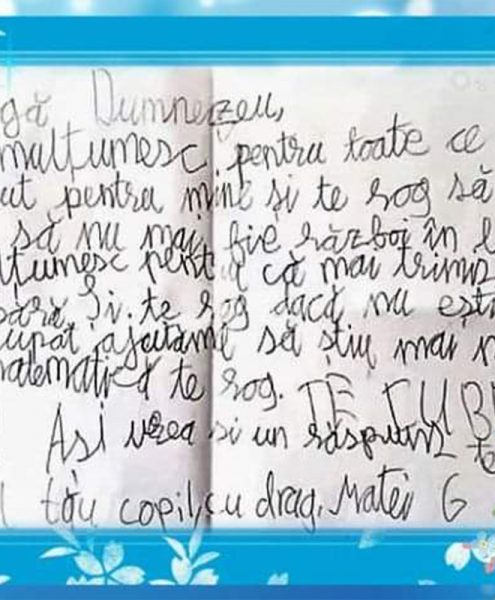 gă Dumnezeu,
mulțumesc pentru toate ce
ut pentru mine și te rog să
să nu mai fie război în l
lțumesc pentru că mai trimis
oară Și te rog dacă nu ești
upat ajutame să știu mai m
matematică te rog. TE IUB
Ași vrea si un răspuns t
l tău copil, cu drag, Matei G